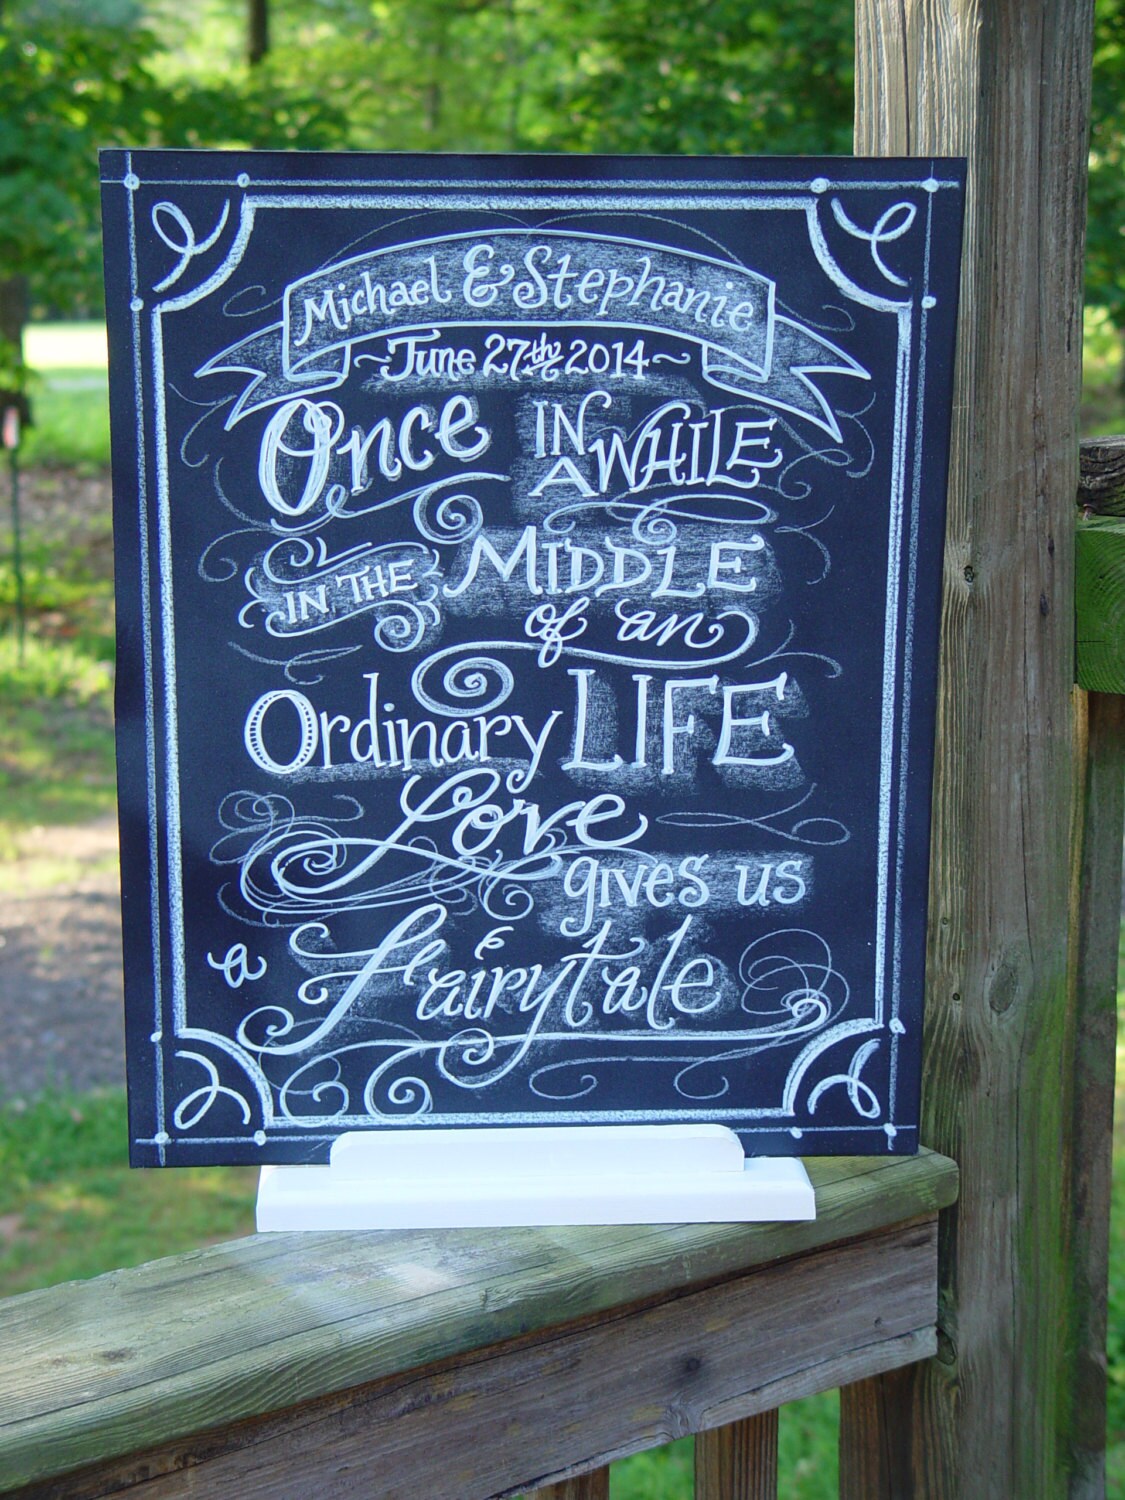 Michael & Stephanie
~June 27th 2014~
Once IN A WHILE
IN THE MIDDLE
of an
Ordinary LIFE
Love
gives us
a Fairytale